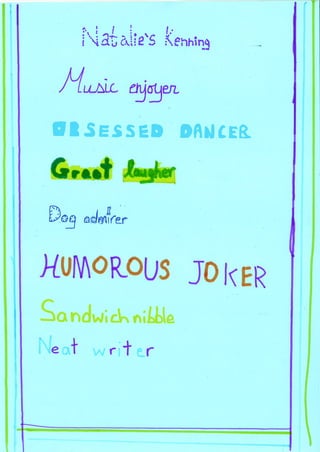 Natalie's Kenning
Music enjoyer
OBSESSED DANCER
Great laugher
Dog admirer
HUMOROUS JOKER
Sandwich nibble
Neat writer